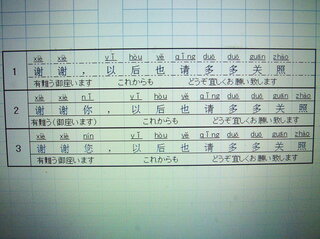 xiè xiè yǐ hòu yě qǐng duō duō guān zhào
1 谢谢，以后也请多多关照
有難う御座います これからも どうぞ宜しくお願い致します
xiè xiè nǐ yǐ hòu yě qǐng duō duō guān zhào
2 谢谢你，以后也请多多关照
有難う御座います） これからも どうぞ宜しくお願い致します
xiè xiè nín yǐ hòu yě qǐng duō duō guān zhào
3 谢谢您，以后也请多多关照
有難う御座います これからも どうぞ宜しくお願い致します